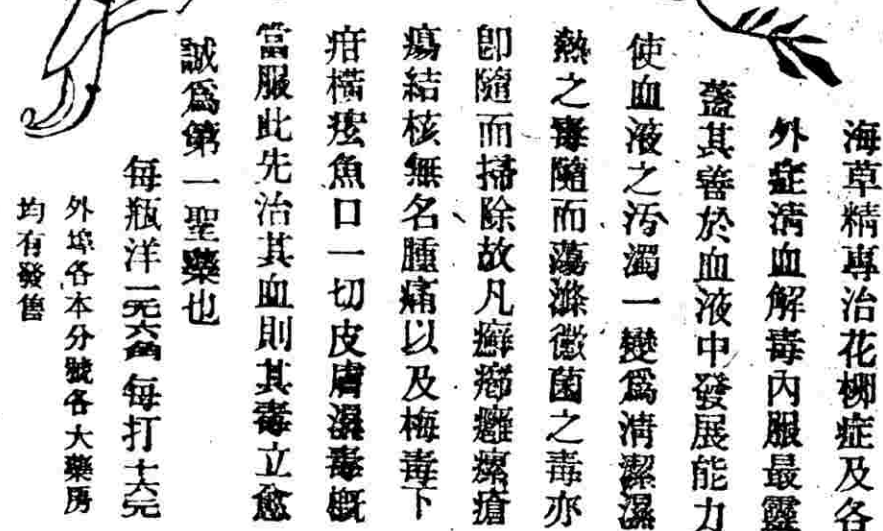 海草精專治花柳症及各
外症清血解毒內服最靈
蓋其善於血液中發展能力
使血液之汚濁一變爲淸潔濕
熱之毒隨而蕩滌黴菌之毒亦
卽隨而掃除故凡癬癤癰瘰瘡
瘍結核無名腫痛以及梅毒下
疳橫痃魚口一切皮膚濕毒槪
當服此先治其血則其毒立愈
誠爲第一聖藥也
每瓶洋一元六角每打十六元
外埠各本分號各大藥房
均有發售